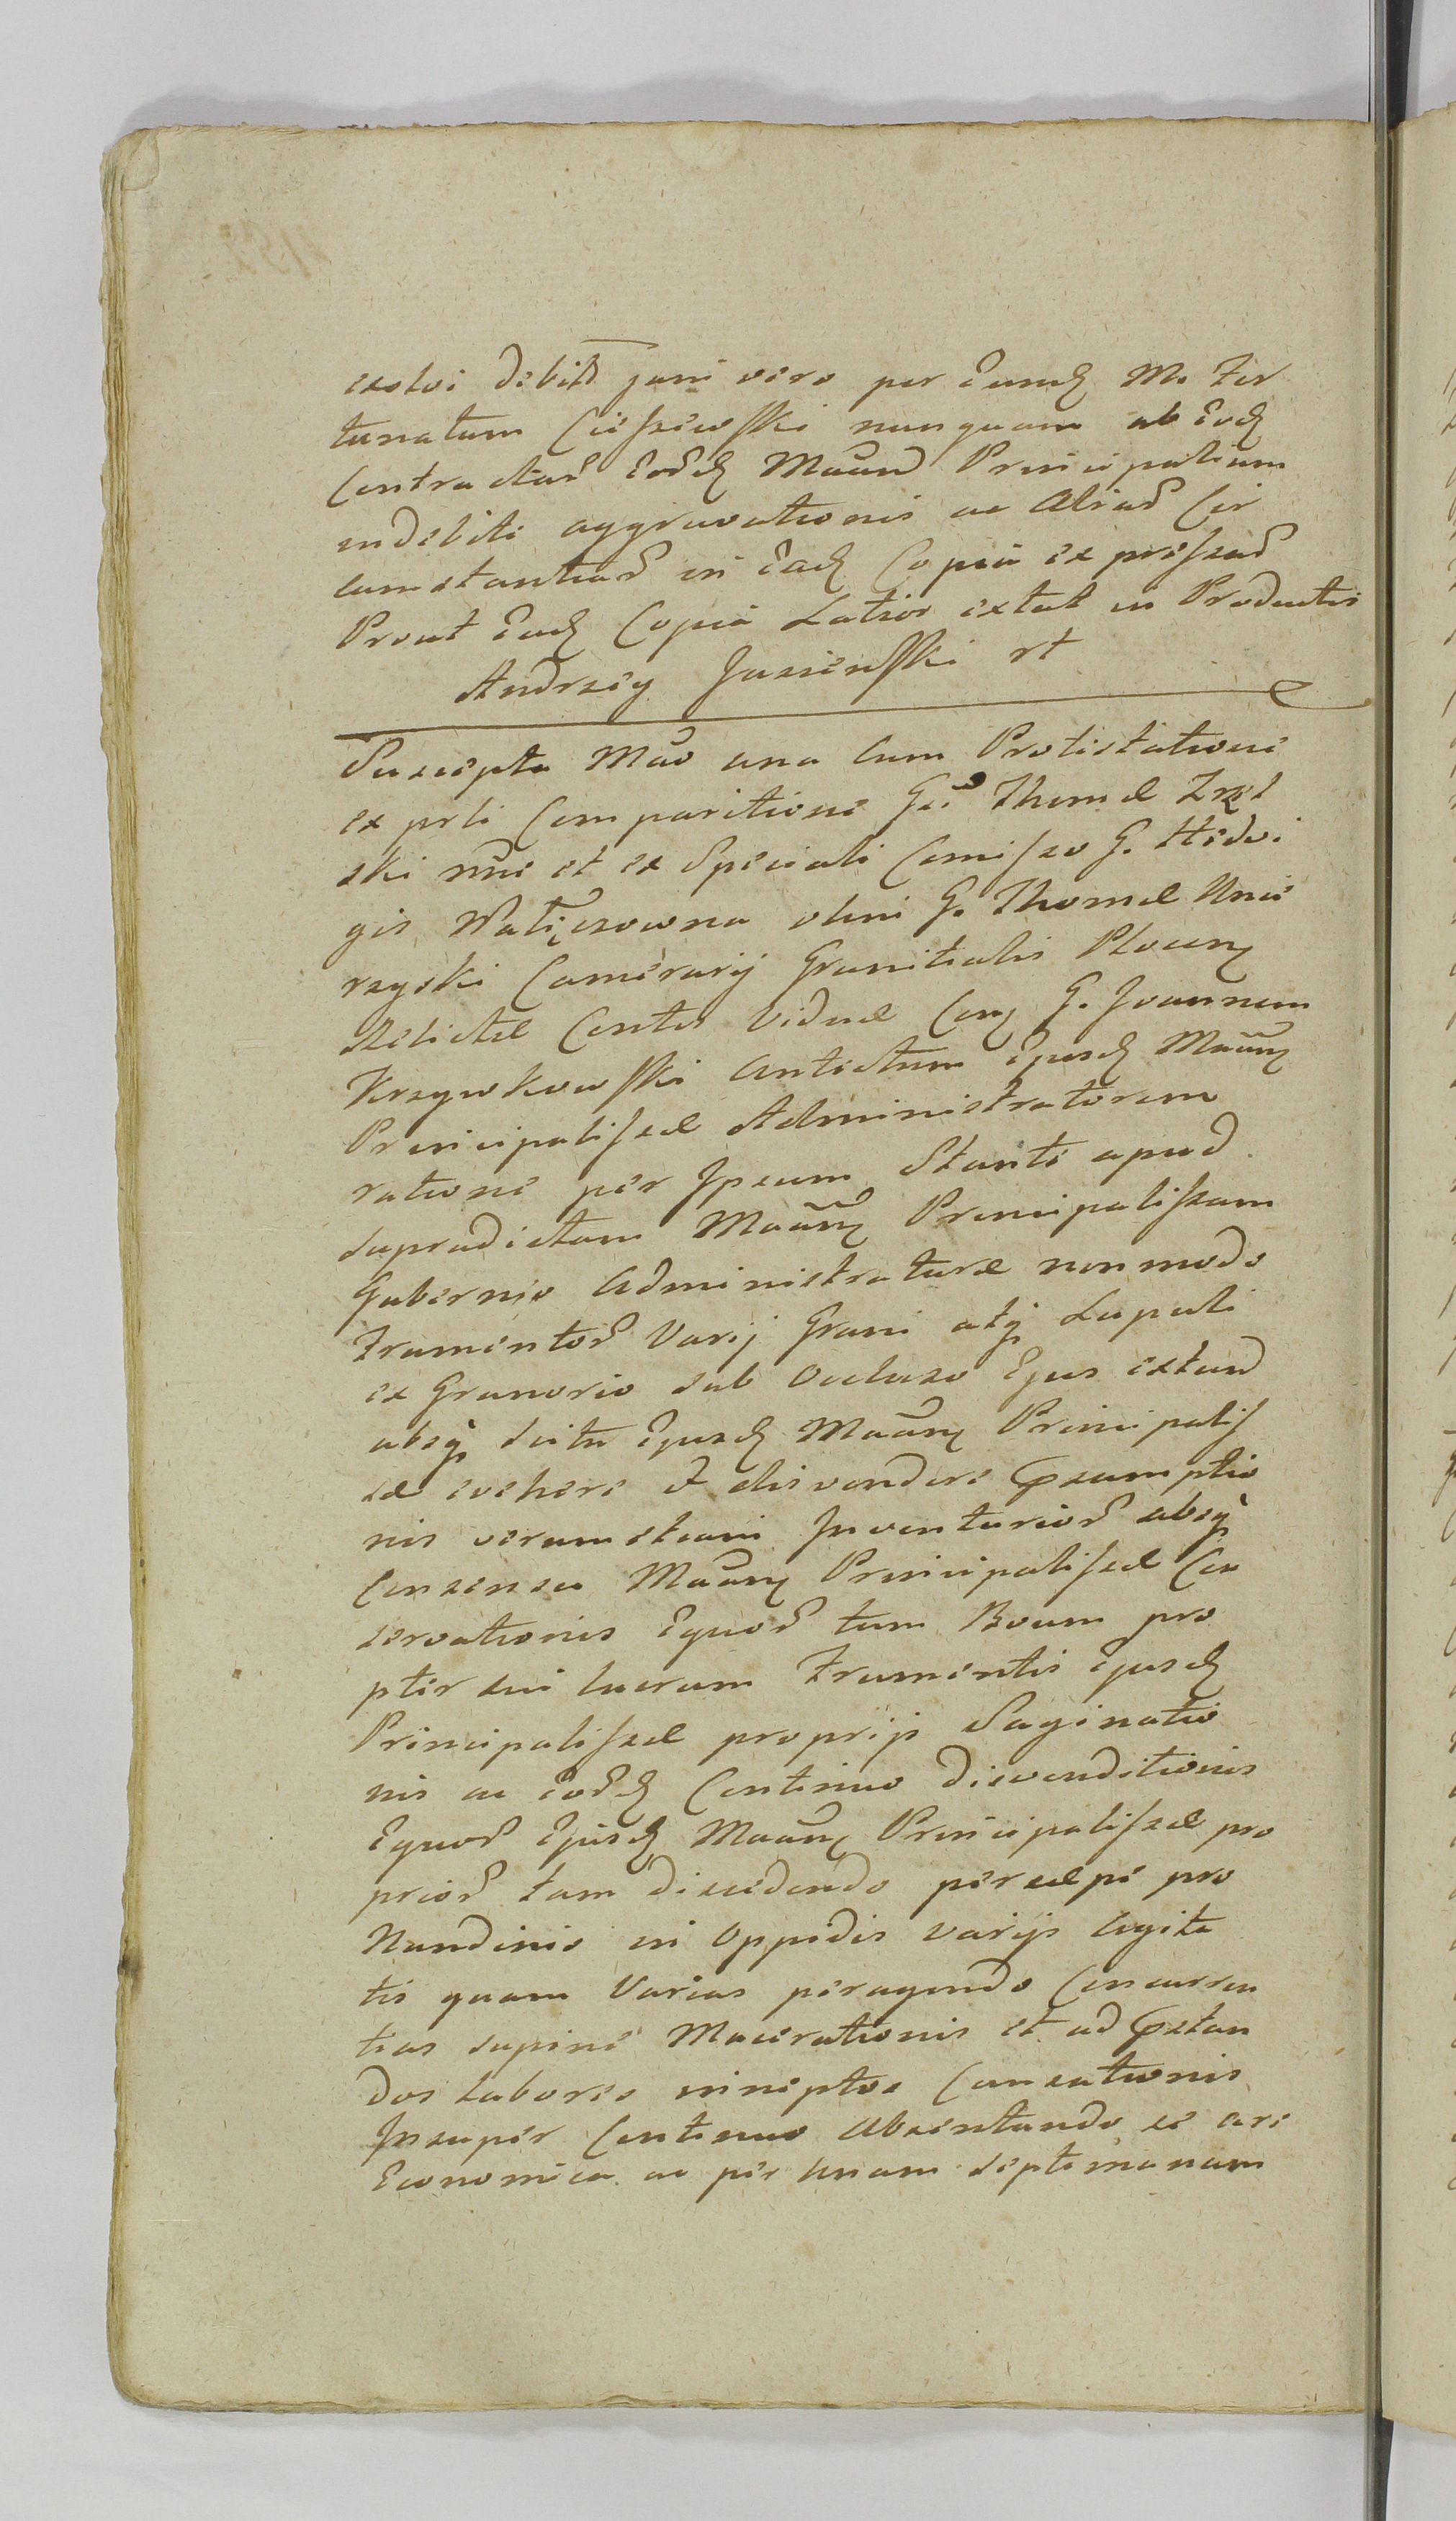 exolvi debit̄ jam vero per Eund M. For
tunatum Cieszewski nunquam ab Eod
Contractus Eord Maard Principalium
indebiti aggravationis ac Aliar Cir
cumstantiar in Ead Copia expressar
Prout Ead Copia Latior extat in Productis
Andrzey Jasienski rt
Suscepta Mao una cum Protestatione
ex prti Comparitione Gsi Thomæ
ski nne et ex Speciali Comisso G. Hedvi
gis Watięczowna olim G. Thomæ Unie
rzyski Camerarij Granitialis Plocen
Relictæ Contis Viduæ Con G. Joannem
Krzywkowski Antictum Ejusd Maan
Principalissæ Administratorem
ratione per Ipsum Stante apud
supradictam Maan Principalissam
Gubernio Administraturæ non modo
Frumentor Varij Grani atq Lupuli
ex Granario sub Occluso Ejus extand
absq scitu Ejusd Maan Principalis
sæ evehere et disvendere Præsumptio
nis verum etiam Inventarior absq
Consensu Maan Principalissæ Con
servationis Equor tum Boum pro
pter sui lucrum Frumentis Ejusd
Principalissæ proprijs Saginatio
nis ac Eord Continuo Disvenditionis
Equor Ejusd Maan Principalissæ pro
prior tam discedendo persæpe pro
Nundinis in Oppidis varijs Agita
tis quam Varias peragendo Concurren
tias supine Macerationis et ad Præstan
dos labores ineptos Causationis
Insuper Continuo Absentando se a re
Economica ac per Unam septimanam